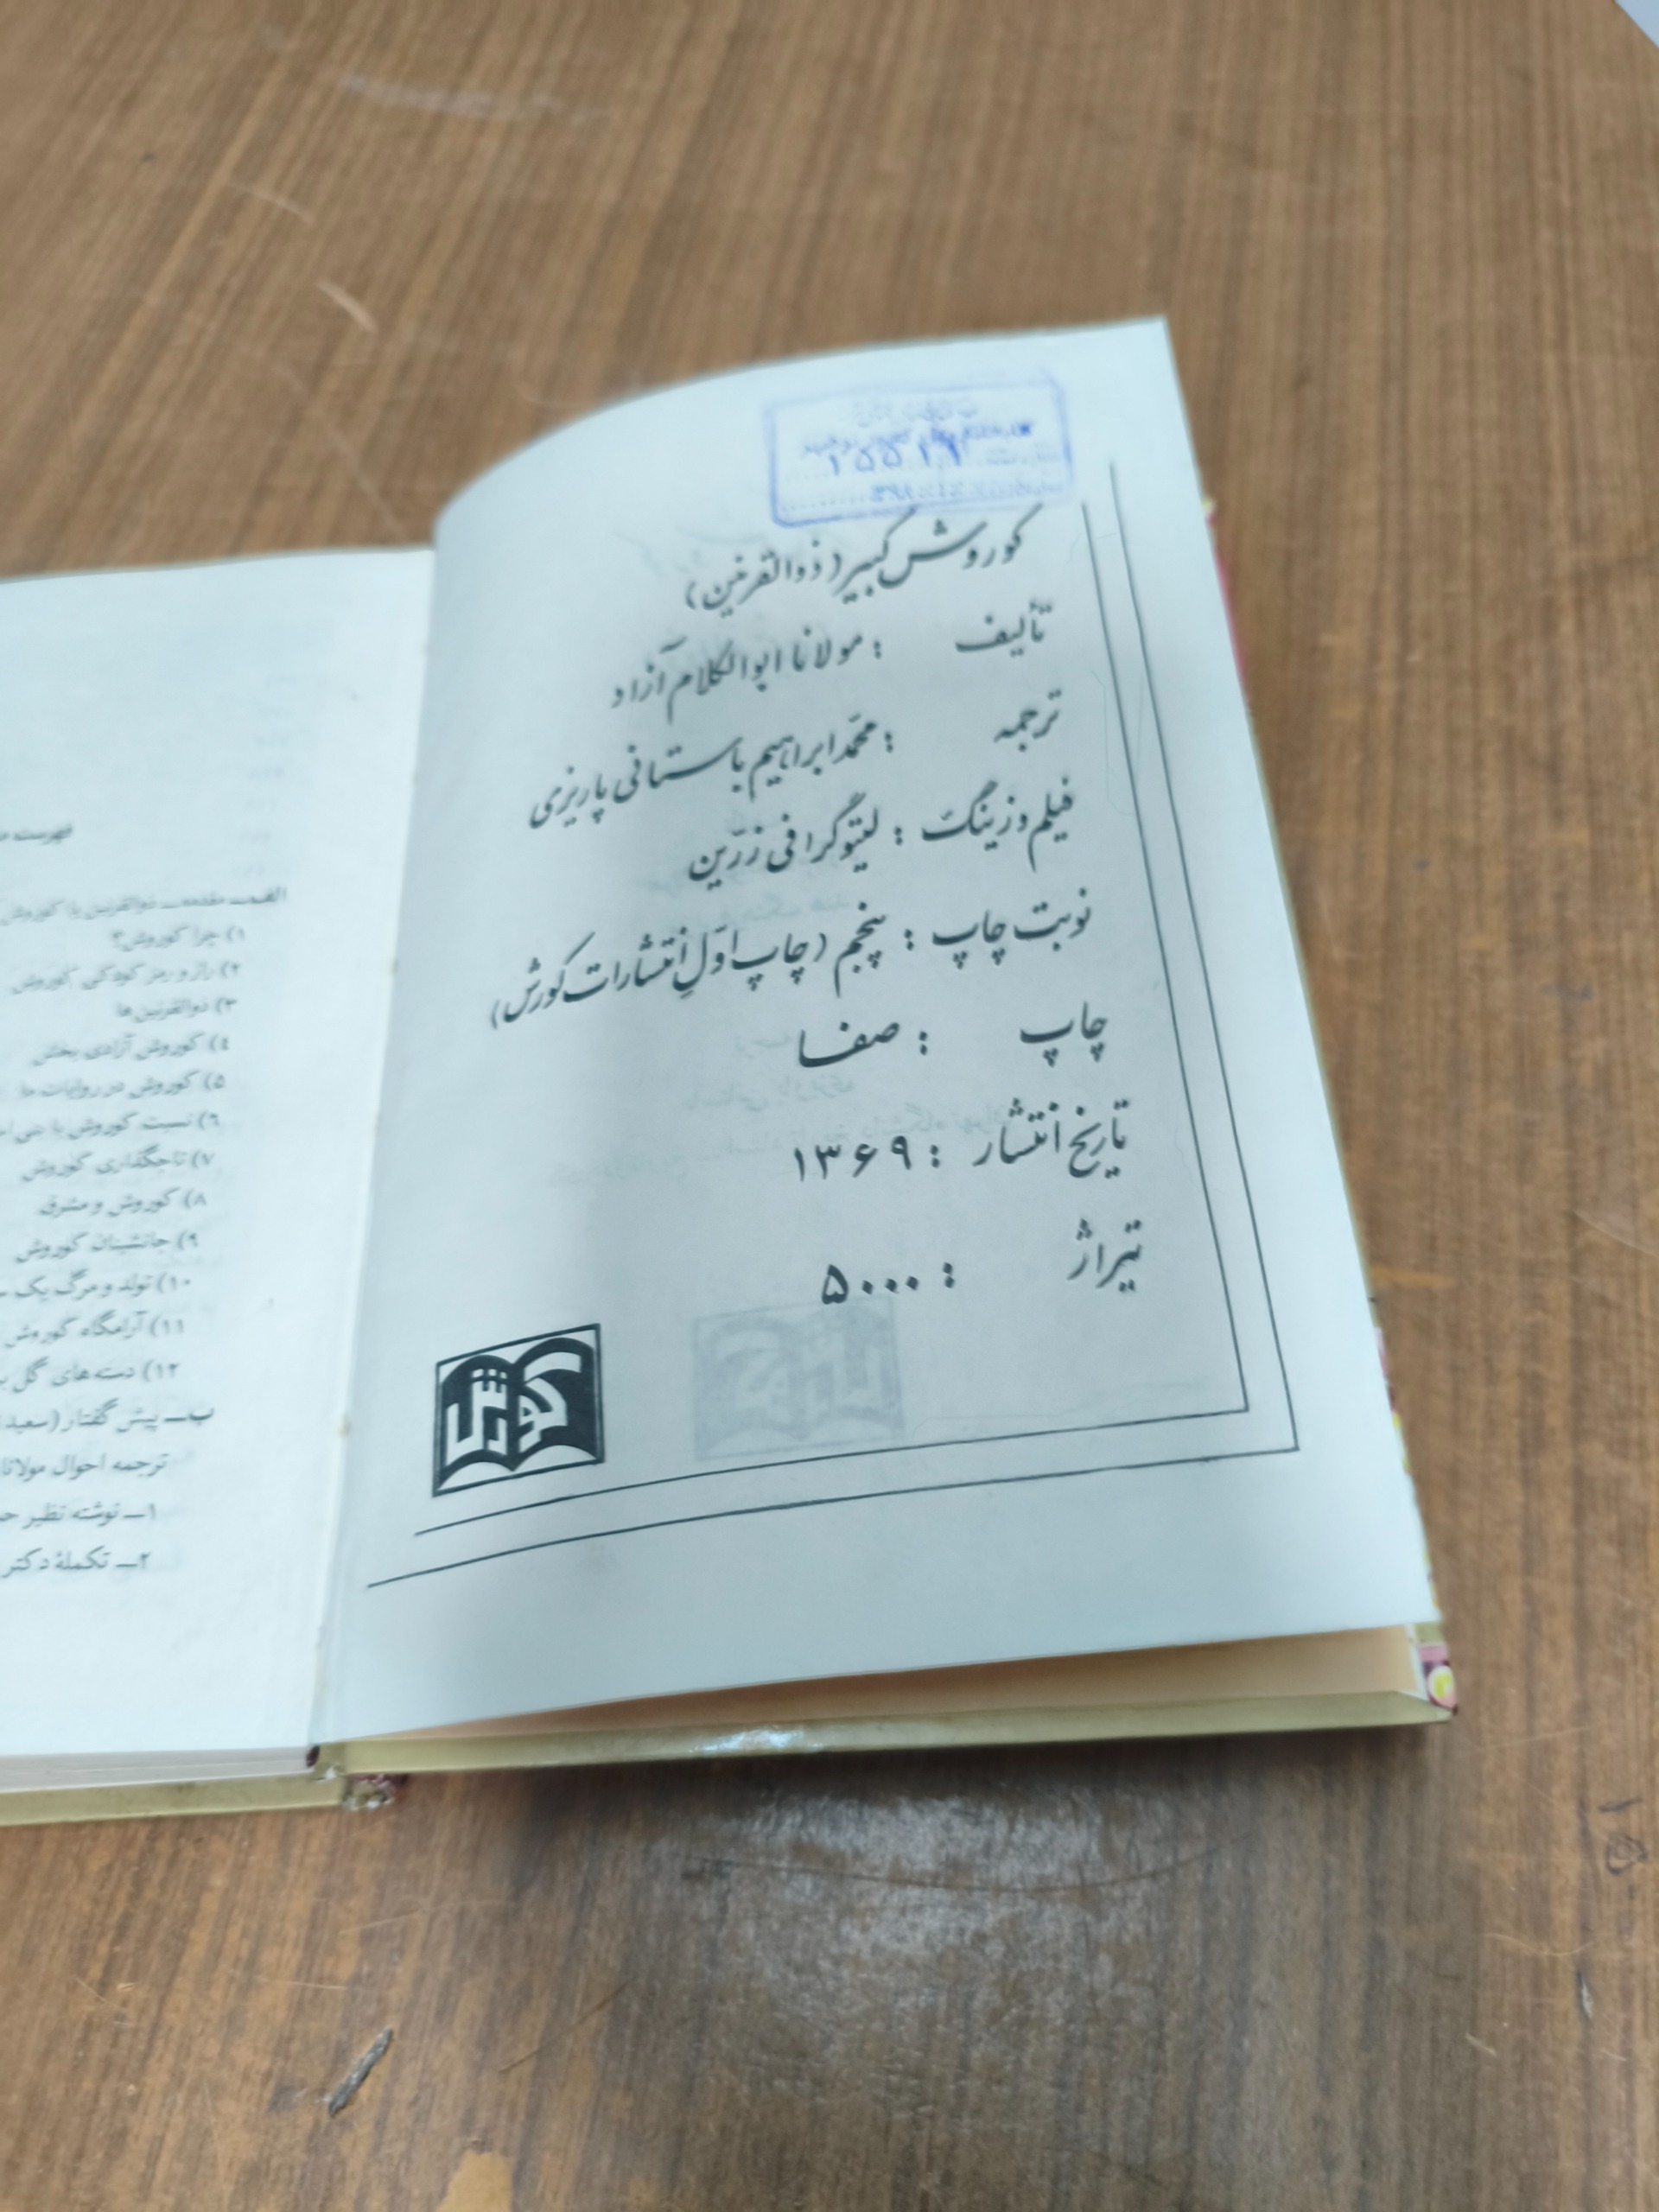 ۱۵۵۱۹
کوروش کبیر (ذوالقرنین)
تألیف : مولانا ابوالکلام آزاد
ترجمه : محمّد ابراهیم باستانی پاریزی
فیلم و زینگ : لیتوگرافی زرّین
نوبت چاپ : پنجم (چاپ اوّلِ انتشارات کورش)
چاپ : صفا
تاریخ انتشار : ۱۳۶۹
تیراژ : ۵۰۰۰
کورش
فهرست
الف ـ مقدمه ـ ذوالقرنین یا کوروش
۱) چرا کوروش؟
۲) راز و رمز کودکی کوروش
۳) ذوالقرنین‌ها
۴) کوروش آزادی بخش
۵) کوروش در روایات ما
۶) نسبت کوروش با
۷) تاجگذاری کوروش
۸) کوروش و مشرق
۹) جانشینان کوروش
۱۰) تولد و مرگ یک
۱۱) آرامگاه کوروش
۱۲) دسته‌های گل
ب ـ پیش گفتار (سعید
ترجمه احوال مولانا
۱ـ نوشته نظیر
۲ـ تکملهٔ دکتر